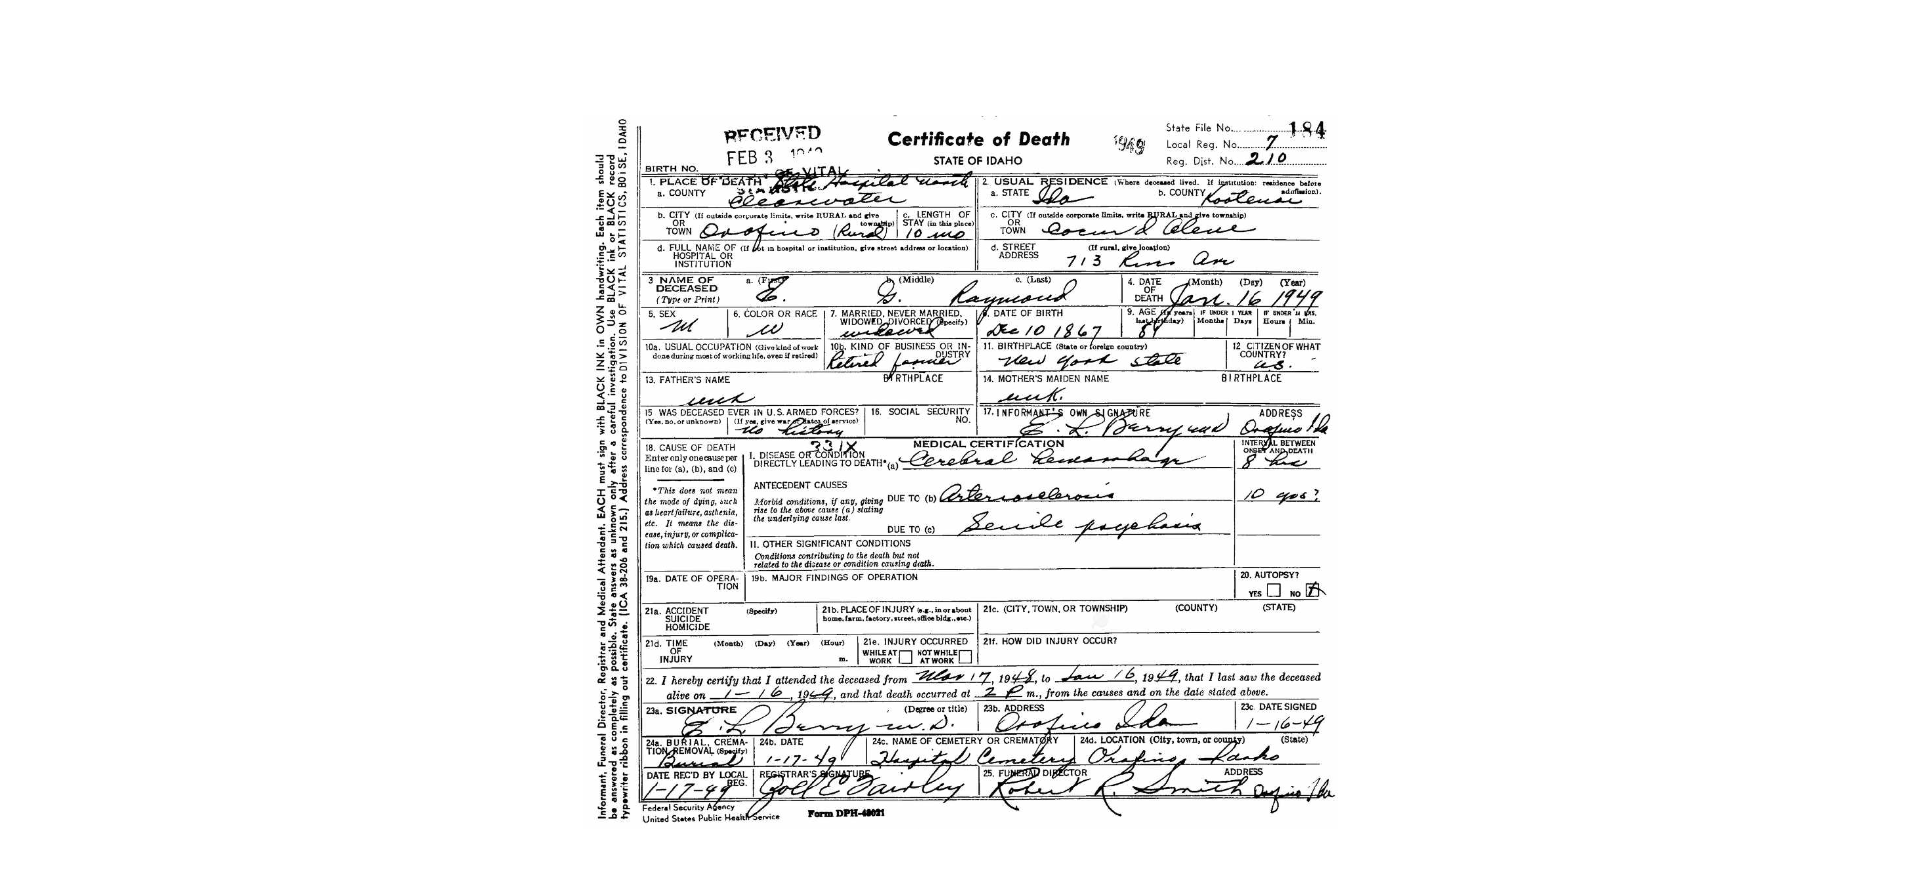 RECEIVED
FEB 3
OF VITAL
Certificate of Death
STATE OF IDAHO
1949
State File No. 184
Local Reg. No. 7
Reg. Dist. No. 210
BIRTH NO.
1. PLACE OF DEATH State Hospital North
a. COUNTY Clearwater
2. USUAL RESIDENCE (Where deceased lived. If institution: residence before admission).
a. STATE Ida b. COUNTY Kootenai
b. CITY (If outside corporate limits, write RURAL and give township)
OR
TOWN Orofino (Rural)
c. LENGTH OF STAY (in this place)
10 mo
c. CITY (If outside corporate limits, write RURAL and give township)
OR
TOWN Coeur d Alene
d. FULL NAME OF (If not in hospital or institution, give street address or location)
HOSPITAL OR
INSTITUTION
d. STREET ADDRESS (If rural, give location)
713 Ave
3 NAME OF DECEASED
(Type or Print)
a. (First) E.
b. (Middle) G.
c. (Last) Raymond
4. DATE OF DEATH (Month) (Day) (Year)
Jan. 16 1949
5. SEX
M
6. COLOR OR RACE
W
7. MARRIED, NEVER MARRIED, WIDOWED, DIVORCED (Specify)
widowed
8. DATE OF BIRTH
Dec 10 1867
9. AGE (In years last birthday)
81
IF UNDER 1 YEAR
Months Days
IF UNDER 24 HRS.
Hours Min.
10a. USUAL OCCUPATION (Give kind of work done during most of working life, even if retired)
10b. KIND OF BUSINESS OR INDUSTRY
Retired farmer
11. BIRTHPLACE (State or foreign country)
New York state
12 CITIZEN OF WHAT COUNTRY?
U.S.
13. FATHER'S NAME BIRTHPLACE
unk
14. MOTHER'S MAIDEN NAME BIRTHPLACE
unk.
15 WAS DECEASED EVER IN U.S. ARMED FORCES?
(Yes, no, or unknown) (If yes, give war or dates of service)
no history
16. SOCIAL SECURITY NO.
17. INFORMANT'S OWN SIGNATURE ADDRESS
E. L. Berry md Orofino Ida
18. CAUSE OF DEATH
Enter only one cause per line for (a), (b), and (c)
*This does not mean the mode of dying, such as heart failure, asthenia, etc. It means the disease, injury, or complication which caused death.
331X
MEDICAL CERTIFICATION
INTERVAL BETWEEN ONSET AND DEATH
I. DISEASE OR CONDITION DIRECTLY LEADING TO DEATH* (a) Cerebral hemorrhage 8 hrs
ANTECEDENT CAUSES
Morbid conditions, if any, giving rise to the above cause (a) stating the underlying cause last.
DUE TO (b) Arteriosclerosis 10 yrs?
DUE TO (c) Senile psychosis
II. OTHER SIGNIFICANT CONDITIONS
Conditions contributing to the death but not related to the disease or condition causing death.
19a. DATE OF OPERATION
19b. MAJOR FINDINGS OF OPERATION
20. AUTOPSY?
YES NO
21a. ACCIDENT (Specify)
SUICIDE
HOMICIDE
21b. PLACE OF INJURY (e.g., in or about home, farm, factory, street, office bldg., etc.)
21c. (CITY, TOWN, OR TOWNSHIP) (COUNTY) (STATE)
21d. TIME OF INJURY (Month) (Day) (Year) (Hour) m.
21e. INJURY OCCURRED
WHILE AT WORK NOT WHILE AT WORK
21f. HOW DID INJURY OCCUR?
22. I hereby certify that I attended the deceased from Mar 17, 1948, to Jan 16, 1949, that I last saw the deceased
alive on 1-16, 1949, and that death occurred at 2 P m., from the causes and on the date stated above.
23a. SIGNATURE (Degree or title)
E. L. Berry M.D.
23b. ADDRESS
Orofino Ida
23c. DATE SIGNED
1-16-49
24a. BURIAL, CREMATION, REMOVAL (Specify)
Burial
24b. DATE
1-17-49
24c. NAME OF CEMETERY OR CREMATORY
Hospital Cemetery
24d. LOCATION (City, town, or county) (State)
Orofino, Idaho
DATE REC'D BY LOCAL REG.
1-17-49
REGISTRAR'S SIGNATURE
Joll E Fairley
25. FUNERAL DIRECTOR ADDRESS
Robert R. Smith Orofino Ida
Federal Security Agency
United States Public Health Service
Form DPH-48021
Informant, Funeral Director, Registrar and Medical Attendant. EACH must sign with BLACK INK in OWN handwriting. Each item should
be answered as completely as possible. State answers as unknown only after a careful investigation. Use BLACK ink or BLACK record
typewriter ribbon in filling out certificate. (ICA 38-206 and 215.) Address correspondence to DIVISION OF VITAL STATISTICS, BOISE, IDAHO